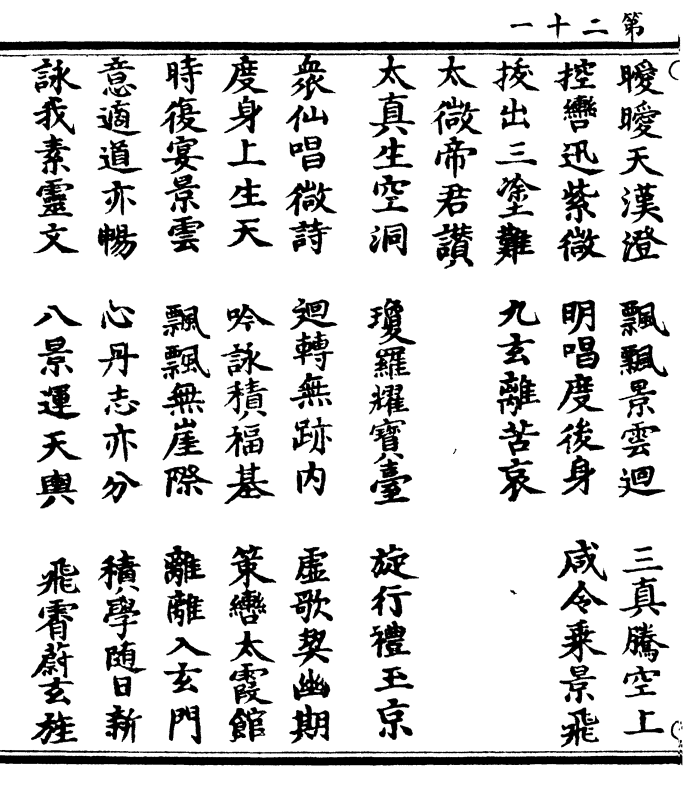 第二十一
曖曖天漢澄　飄飄景雲迴　三真騰空上
控轡迅紫微　明唱度後身　咸令乘景飛
拔出三塗難　九玄離苦哀
太微帝君讚
太真生空洞　瓊羅耀寶臺　旋行禮玉京
衆仙唱微詩　迴轉無跡内　虛歌契幽期
度身上生天　吟詠積福基　策轡太霞館
時復宴景雲　飄飄無崖際　離離入玄門
意適道亦暢　心丹志亦分　積學隨日新
詠我素靈文　八景運天輿　飛霄蔚玄旌